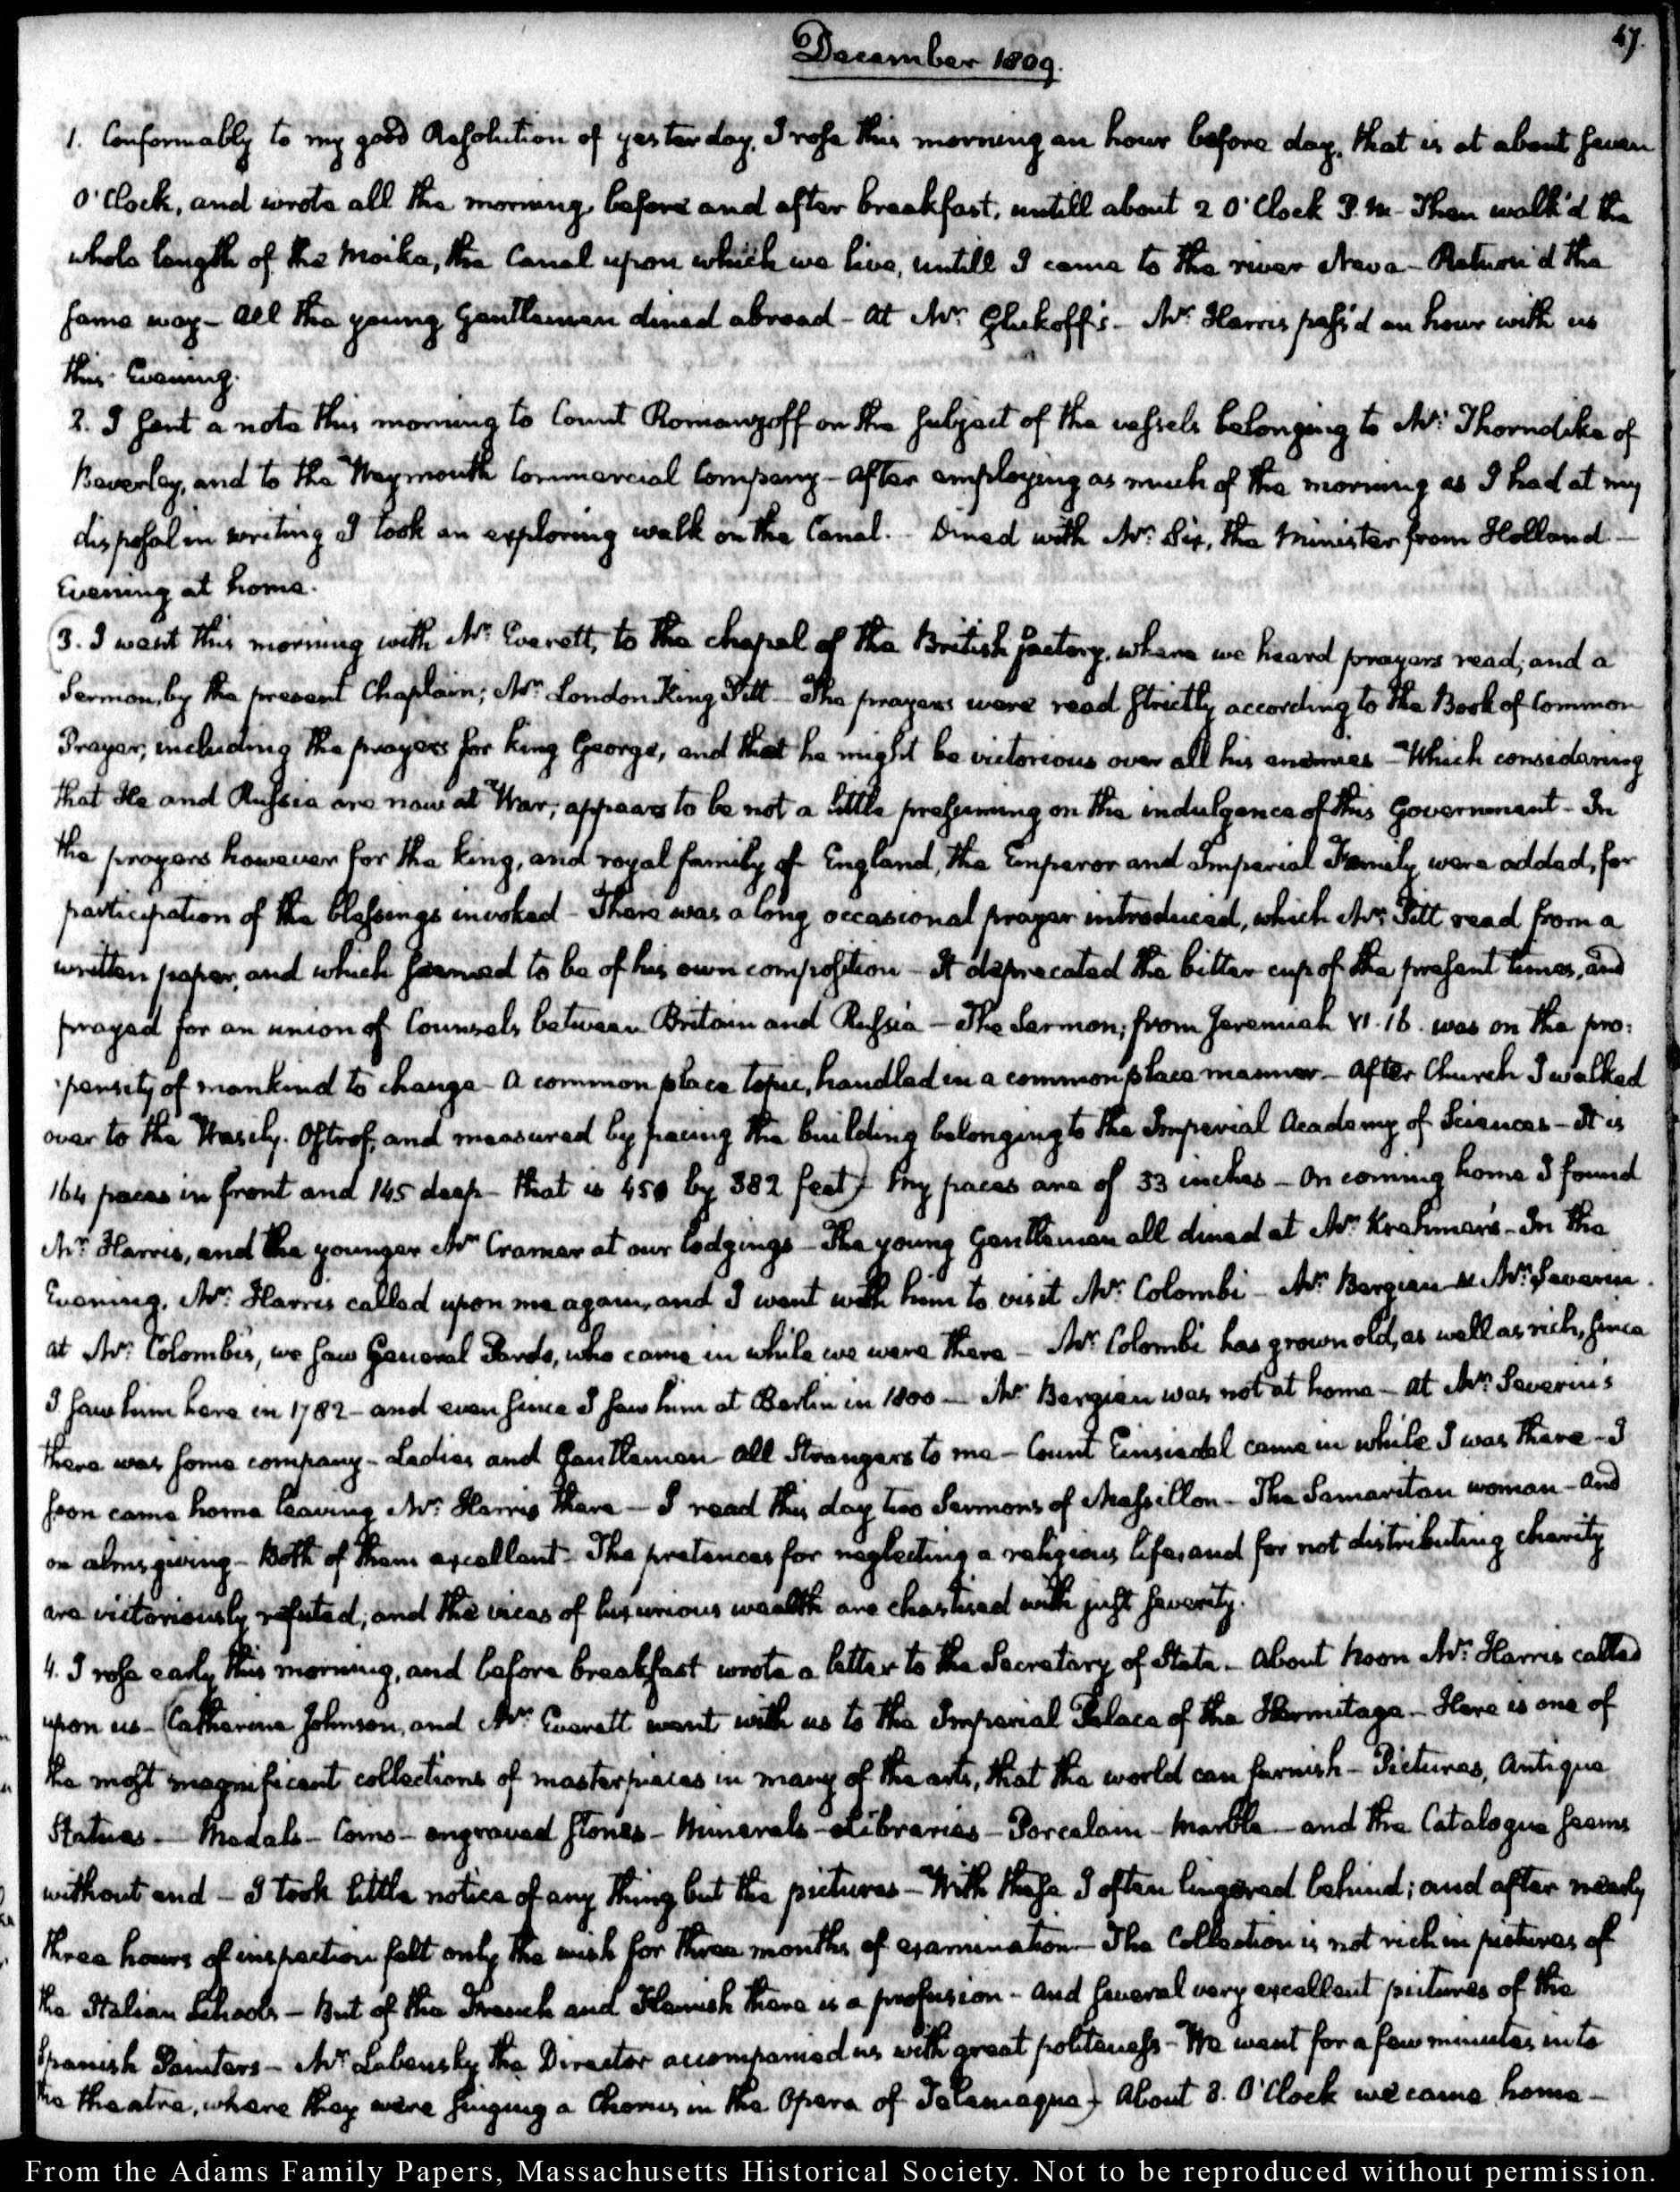 47.
December 1809.
1. Conformably to my good Resolution of yesterday, I rose this morning an hour before day, that is at about seven
O'Clock, and wrote all the morning, before and after breakfast, untill about 2 O'Clock P.M. Then walk'd the
whole length of the Moika, the Canal upon which we live, untill I came to the river Neva - Return'd the
same way - All the young Gentlemen dined abroad - At Mr. Glukoff's - Mr. Harris pass'd an hour with us
this Evening.
2. I sent a note this morning to Count Romanzoff on the subject of the vessels belonging to Mr. Thorndike of
Beverley, and to the Weymouth Commercial Company - After employing as much of the morning as I had at my
disposal in writing I took an exploring walk on the Canal. - Dined with Mr. Six, the Minister from Holland -
Evening at home.
3. I went this morning with Mr. Everett, to the chapel of the British factory, where we heard prayers read, and a
Sermon, by the present Chaplain; Mr. London King Pitt - The prayers were read strictly according to the Book of Common
Prayer; including the prayers for king George, and that he might be victorious over all his enemies - Which considering
that He and Russia are now at War, appears to be not a little presuming on the indulgence of this Government - In
the prayers however for the king, and royal family of England, the Emperor and Imperial Family were added, for
participation of the blessings invoked - There was a long occasional prayer introduced, which Mr. Pitt read from a
written paper, and which seemed to be of his own composition - It deprecated the bitter cup of the present times, and
prayed for an union of Counsels between Britain and Russia - The Sermon; from Jeremiah VI. 16. was on the pro:
:pensity of mankind to change - A common place topic, handled in a common place manner - After Church I walked
over to the Wasily. Ostrof, and measured by pacing the building belonging to the Imperial Academy of Sciences - It is
164 paces in front and 145 deep - that is 450 by 382 feet) My paces are of 33 inches - On coming home I found
Mr. Harris, and the younger Mr. Cramer at our lodgings - The young Gentlemen all dined at Mr. Krehmer's - In the
Evening, Mr. Harris called upon me again, and I went with him to visit Mr. Colombi - Mr. Bergien & Mr. Severin.
at Mr. Colombi's, we saw General Pardo, who came in while we were there - Mr. Colombi has grown old, as well as rich, since
I saw him here in 1782 - and even since I saw him at Berlin in 1800 - Mr. Bergien was not at home - at Mr. Severin's
there was some company - Ladies and Gentlemen - All Strangers to me - Count Einsiedel came in while I was there - I
soon came home leaving Mr. Harris there - I read this day two Sermons of Massillon - The Samaritan woman - and
on almsgiving - Both of them excellent - The pretences for neglecting a religious life, and for not distributing charity
are victoriously refuted; and the vices of luxurious wealth are chastised with just severity.
4. I rose early this morning, and before breakfast wrote a letter to the Secretary of State. - About Noon Mr. Harris called
upon us - (Catherine Johnson, and Mr. Everett went with us to the Imperial Palace of the Hermitage - Here is one of
the most magnificent collections of masterpieces in many of the arts, that the world can furnish - Pictures, Antique
Statues - Medals - Coins - engraved stones - Minerals - Libraries - Porcelain - Marble - and the Catalogue seems
without end - I took little notice of any thing but the pictures - With these I often lingered behind; and after nearly
three hours of inspection felt only the wish for three months of examination - The Collection is not rich in pictures of
the Italian Schools - But of the French and Flemish there is a profusion - and several very excellent pictures of the
Spanish Painters - Mr. Labensky the Director accompanied us with great politeness - We went for a few minutes into
the theatre, where they were singing a Chorus in the Opera of Telemaque) About 3. O'Clock we came home -
From the Adams Family Papers, Massachusetts Historical Society. Not to be reproduced without permission.